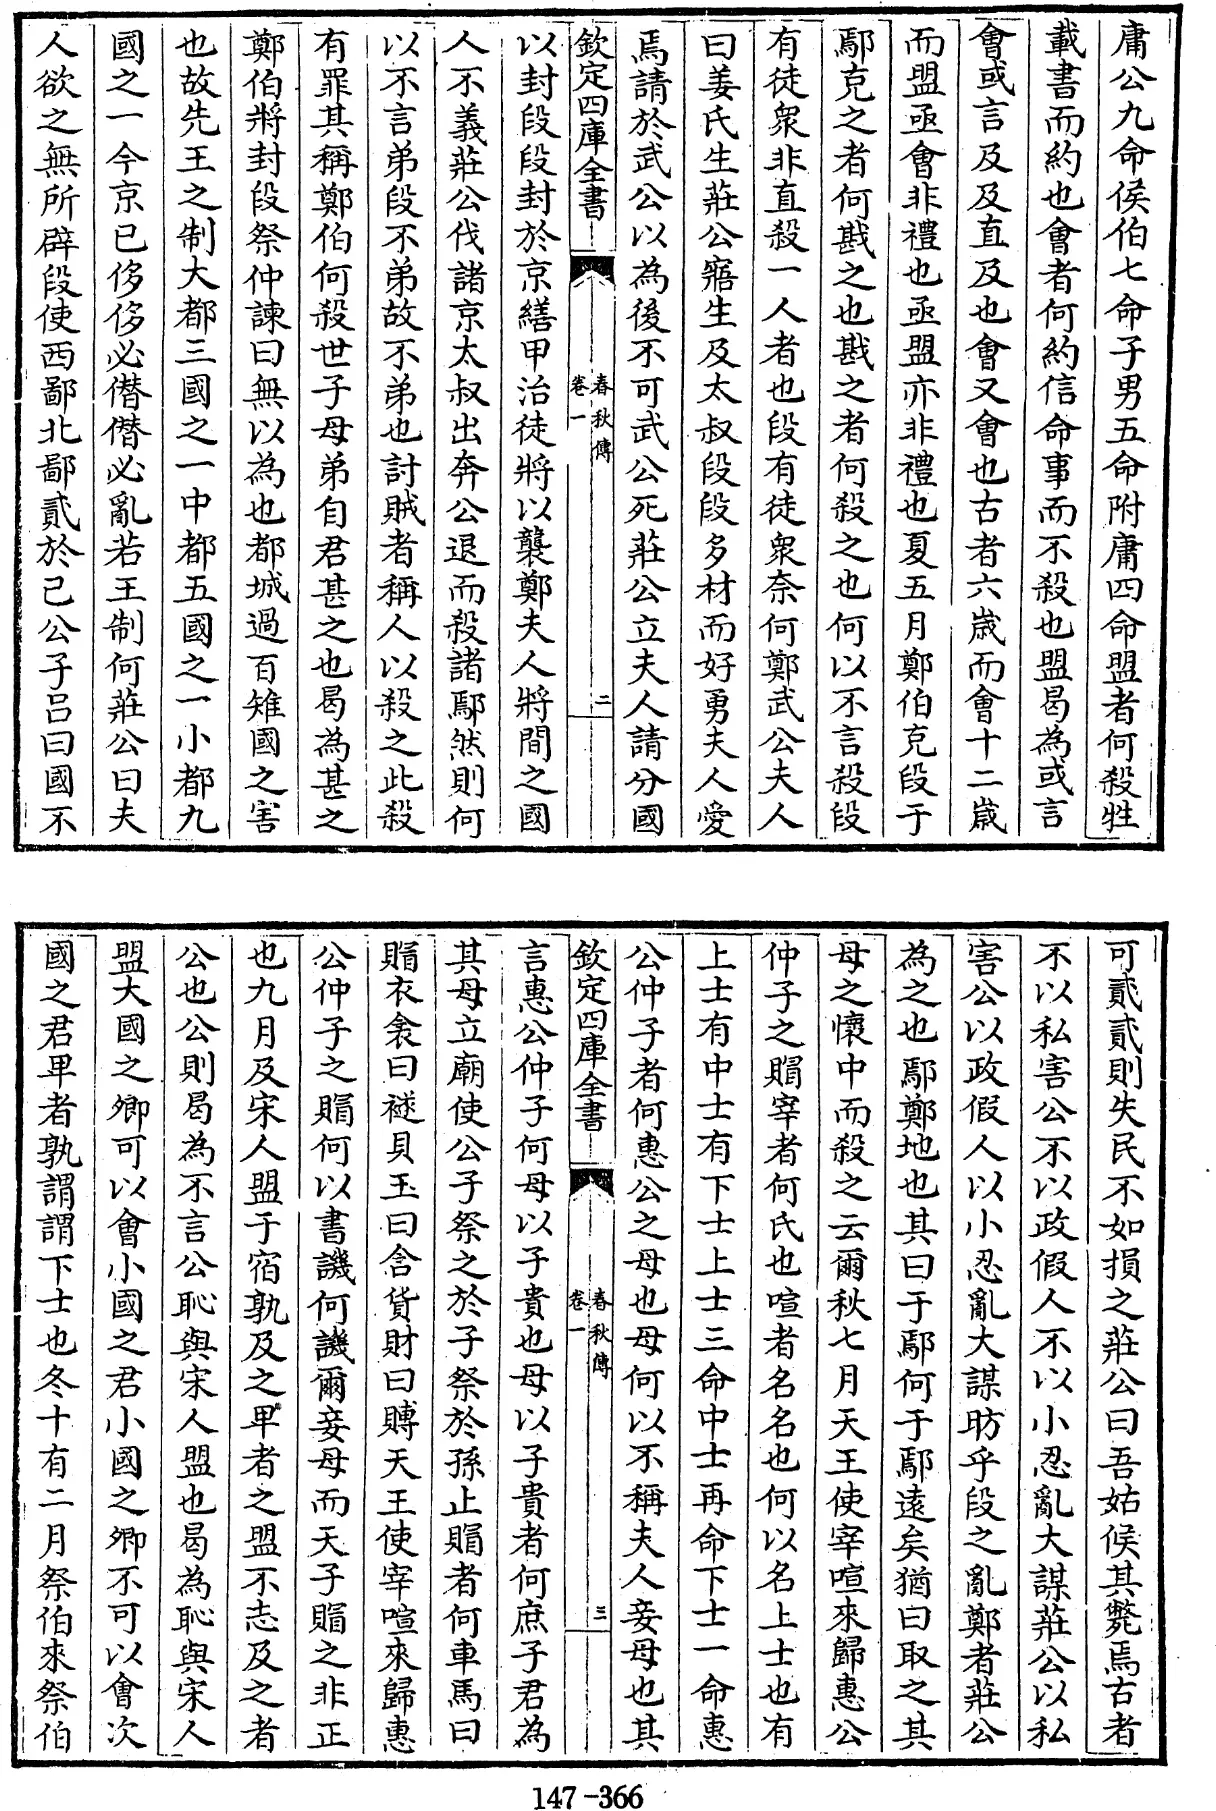 庸公九命侯伯七命子男五命附庸四命盟者何殺牲
載書而約也會者何約信命事而不殺也盟曷為或言
會或言及及直及也會又會也古者六歲而會十二歲
而盟亟會非禮也亟盟亦非禮也夏五月鄭伯克段于
鄢克之者何戡之也戡之者何殺之也何以不言殺段
有徒衆非直殺一人者也段有徒衆奈何鄭武公夫人
曰姜氏生莊公寤生及太叔段段多材而好勇夫人愛
焉請於武公以為後不可武公死莊公立夫人請分國
欽定四庫全書
春秋傳
卷一
二
以封段段封於京繕甲治徒將以襲鄭夫人將間之國
人不義莊公伐諸京太叔出奔公退而殺諸鄢然則何
以不言弟段不弟故不弟也討賊者稱人以殺之此殺
有罪其稱鄭伯何殺世子母弟自君甚之也曷為甚之
鄭伯將封段祭仲諫曰無以為也都城過百雉國之害
也故先王之制大都三國之一中都五國之一小都九
國之一今京已侈侈必僭僭必亂若王制何莊公曰夫
人欲之無所辟段使西鄙北鄙貳於己公子呂曰國不
可貳貳則失民不如損之莊公曰吾姑俟其斃焉古者
不以私害公不以政假人不以小忍亂大謀莊公以私
害公以政假人以小忍亂大謀昉乎段之亂鄭者莊公
為之也鄢鄭地也其曰于鄢何于鄢遠矣猶曰取之其
母之懷中而殺之云爾秋七月天王使宰咺來歸惠公
仲子之賵宰者何氏也咺者名名也何以名上士也有
上士有中士有下士上士三命中士再命下士一命惠
公仲子者何惠公之母也母何以不稱夫人妾母也其
欽定四庫全書
春秋傳
卷一
三
言惠公仲子何母以子貴也母以子貴者何庶子君為
其母立廟使公子祭之於子祭於孫止賵者何車馬曰
賵衣衾曰襚貝玉曰含貨財曰賻天王使宰咺來歸惠
公仲子之賵何以書譏何譏爾妾母而天子賵之非正
也九月及宋人盟于宿孰及之卑者之盟不志及之者
公也公則曷為不言公恥與宋人盟也曷為恥與宋人
盟大國之卿可以會小國之君小國之卿不可以會次
國之君卑者孰謂謂下士也冬十有二月祭伯來祭伯
147-366